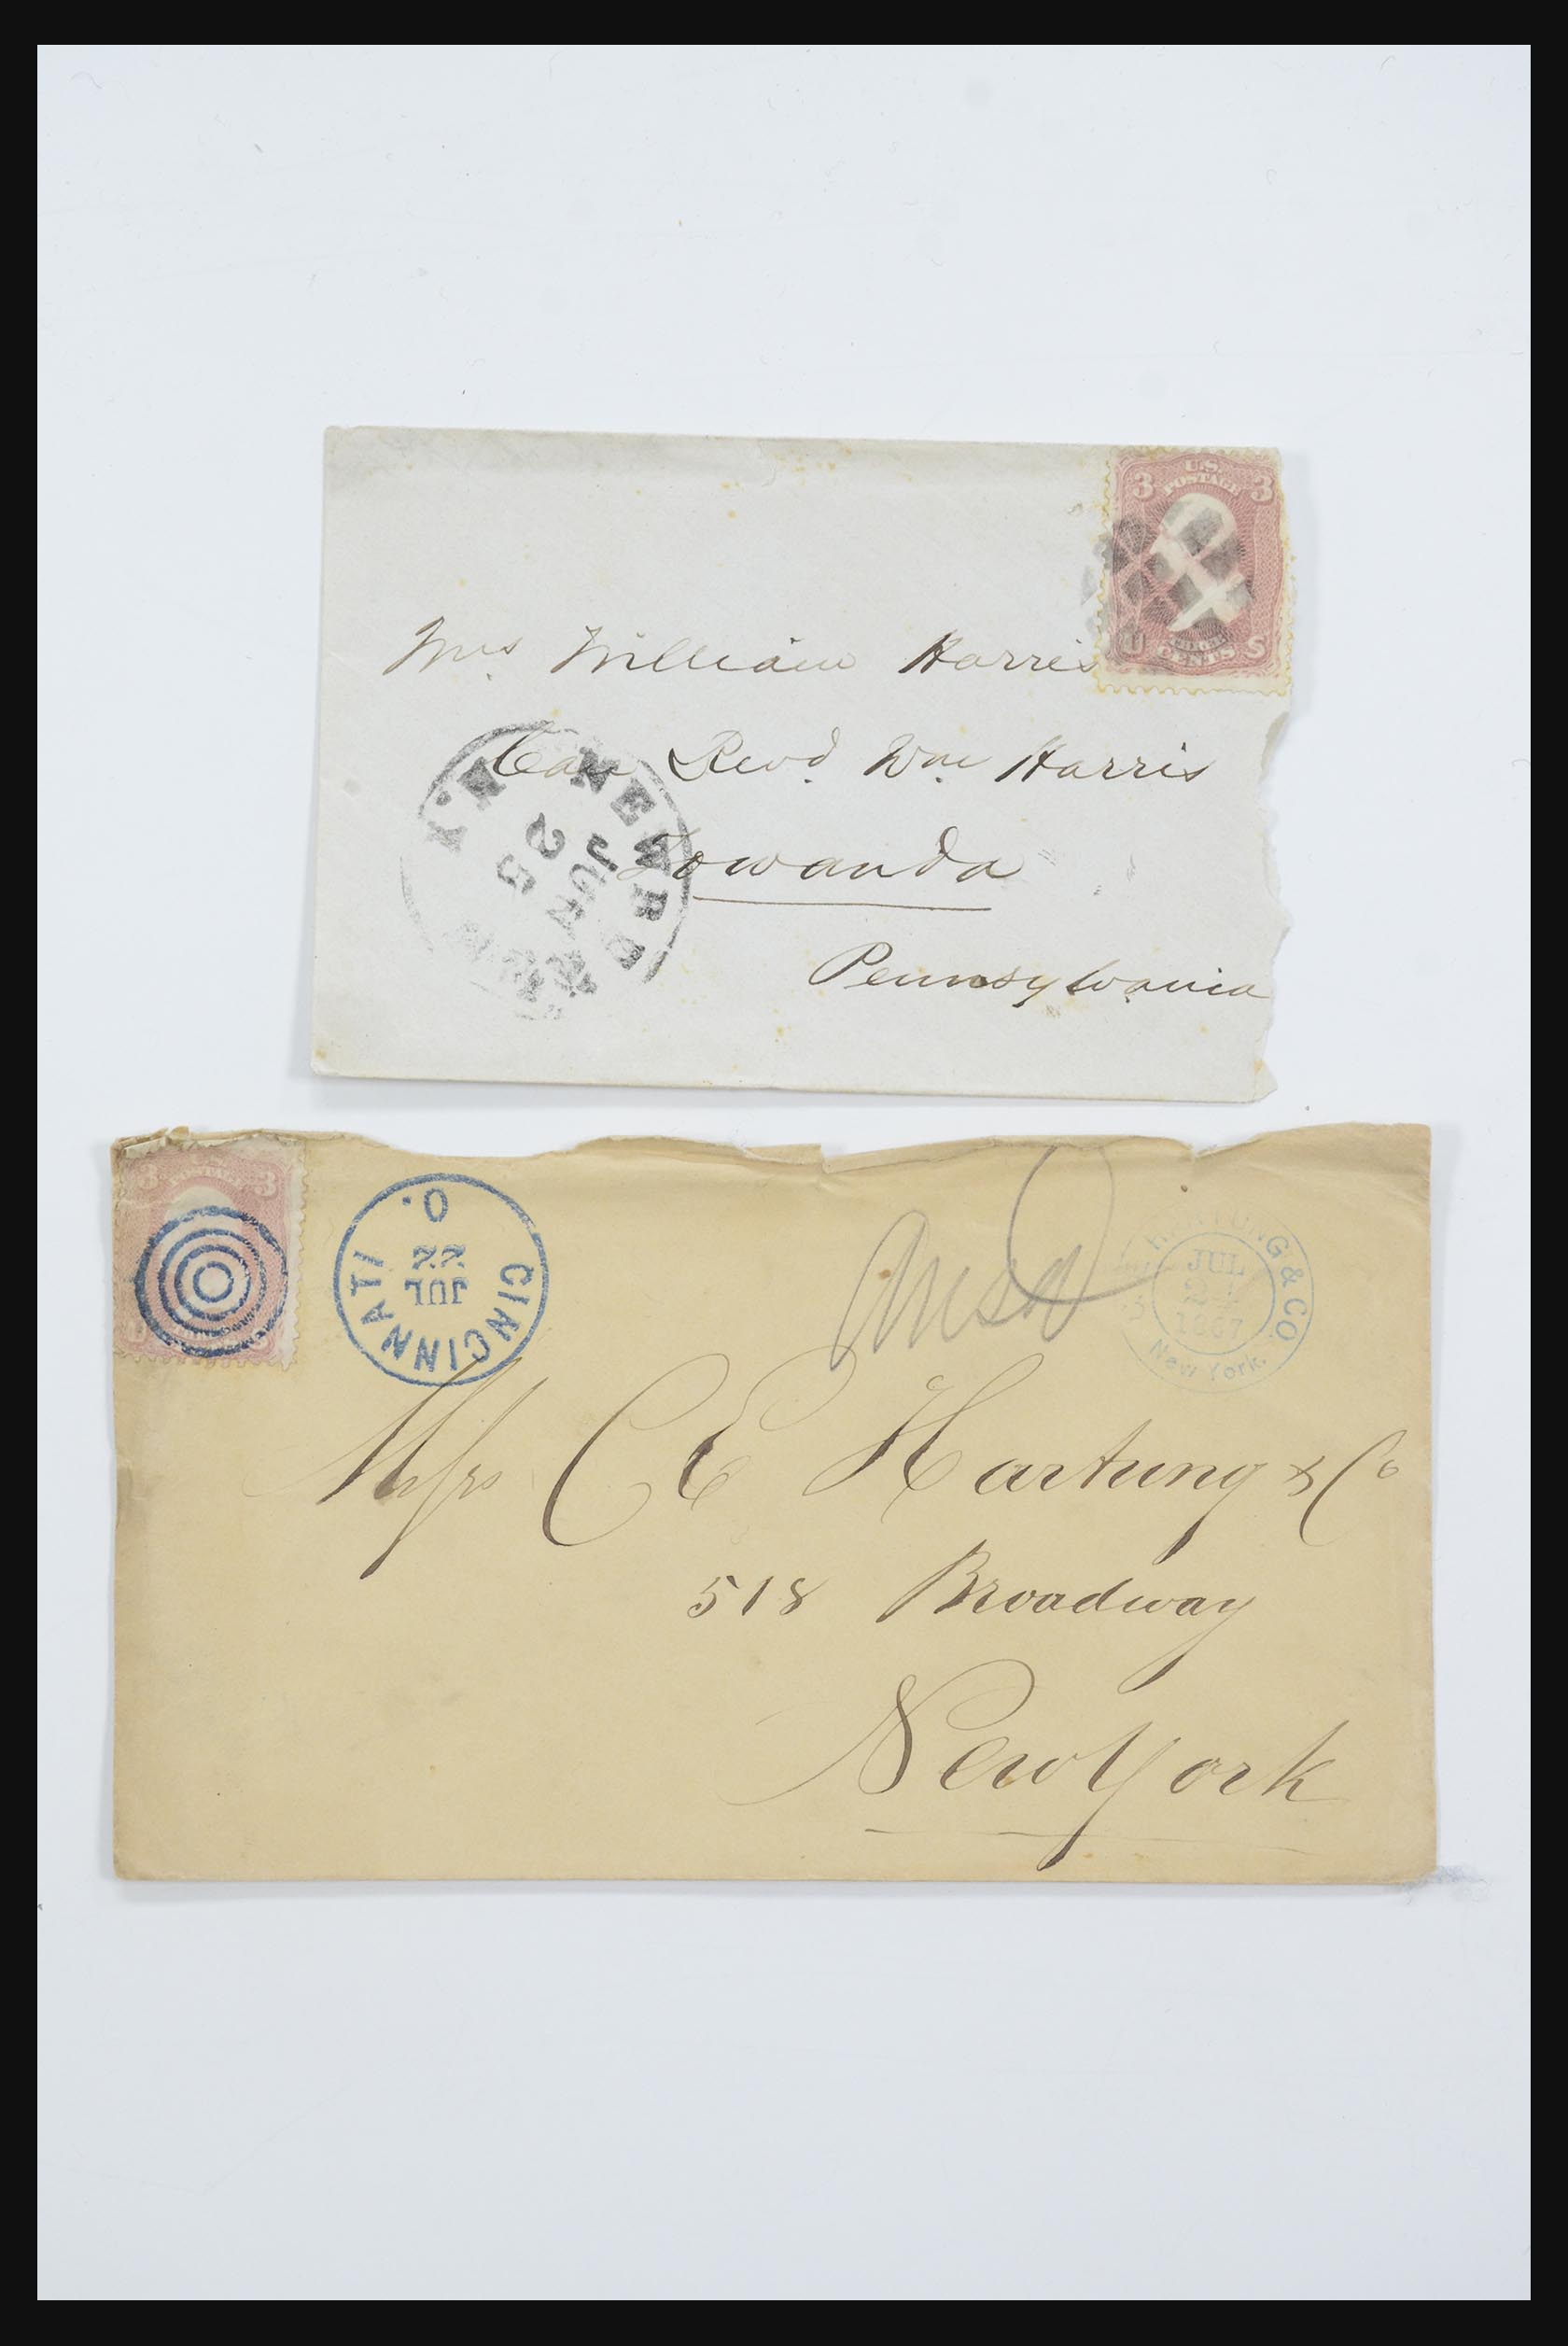 U.S.
POSTAGE
3 3
U S
CENTS
Mrs William Harris
Care Revd. Wm Harris
Towanda
Pennsylvania
N.Y.
JUN
25
3 3
POSTAGE
CINCINNATI
O.
JUL
22
HARTUNG & CO.
JUL
1867
New York.
Messrs C E Hartung & Co
518 Broadway
New York